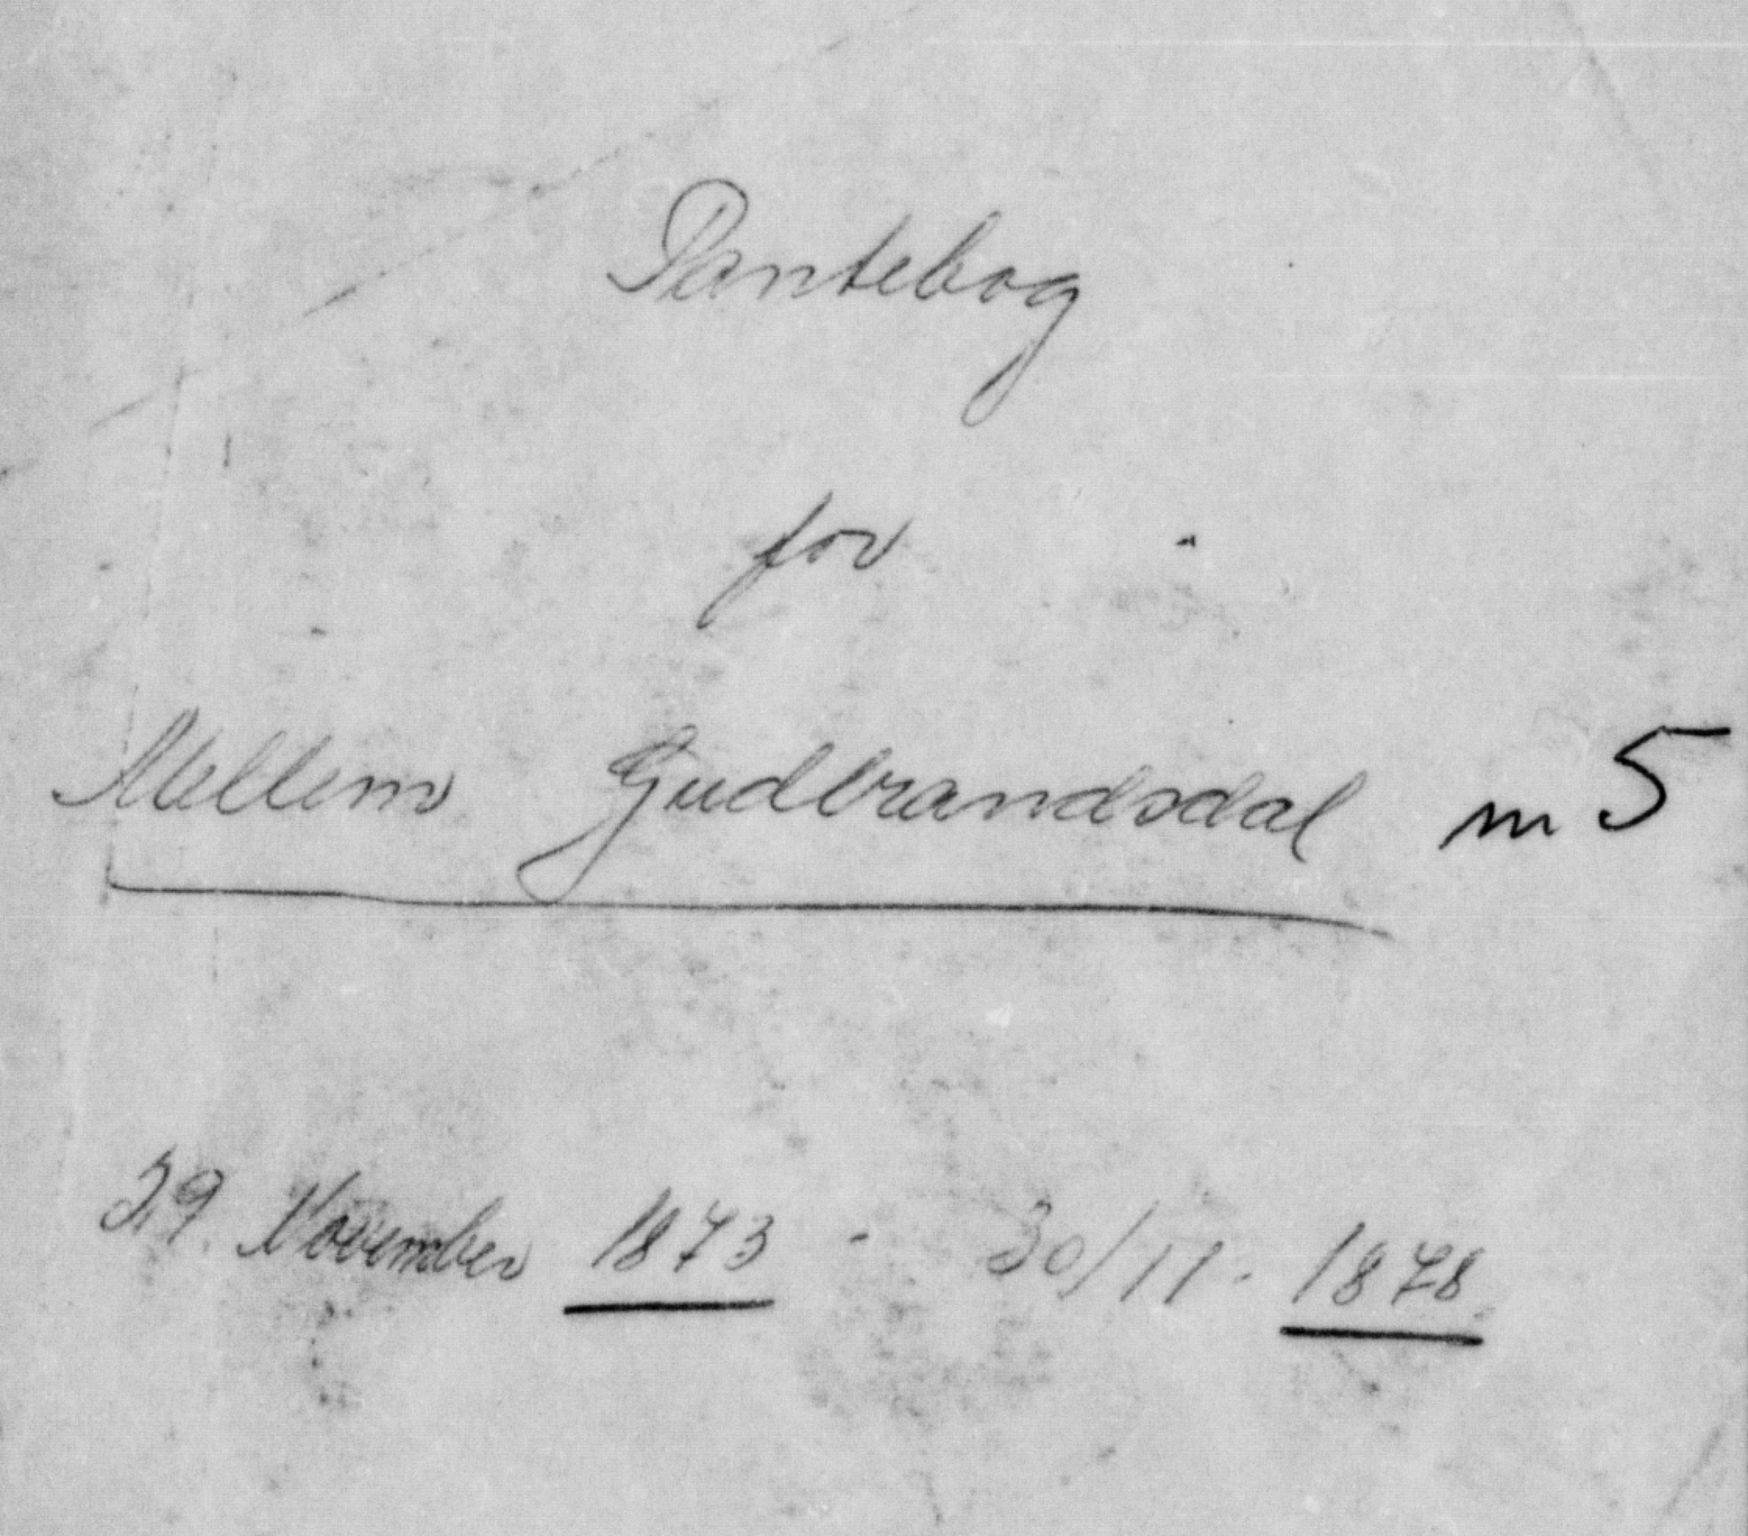 Pantebog
for
Mellem Gudbrandsdal nr 5
29 November 1873 - 30/11. 1878